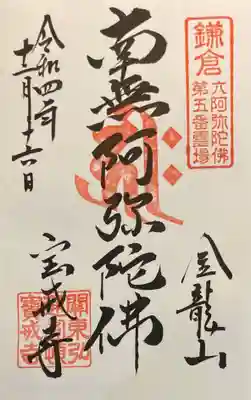 鎌倉
六阿弥陀佛
第五番霊場
金龍山
南無阿弥陀佛
宝戒寺
令和四年
十二月十六日
關東弘
寶戒寺